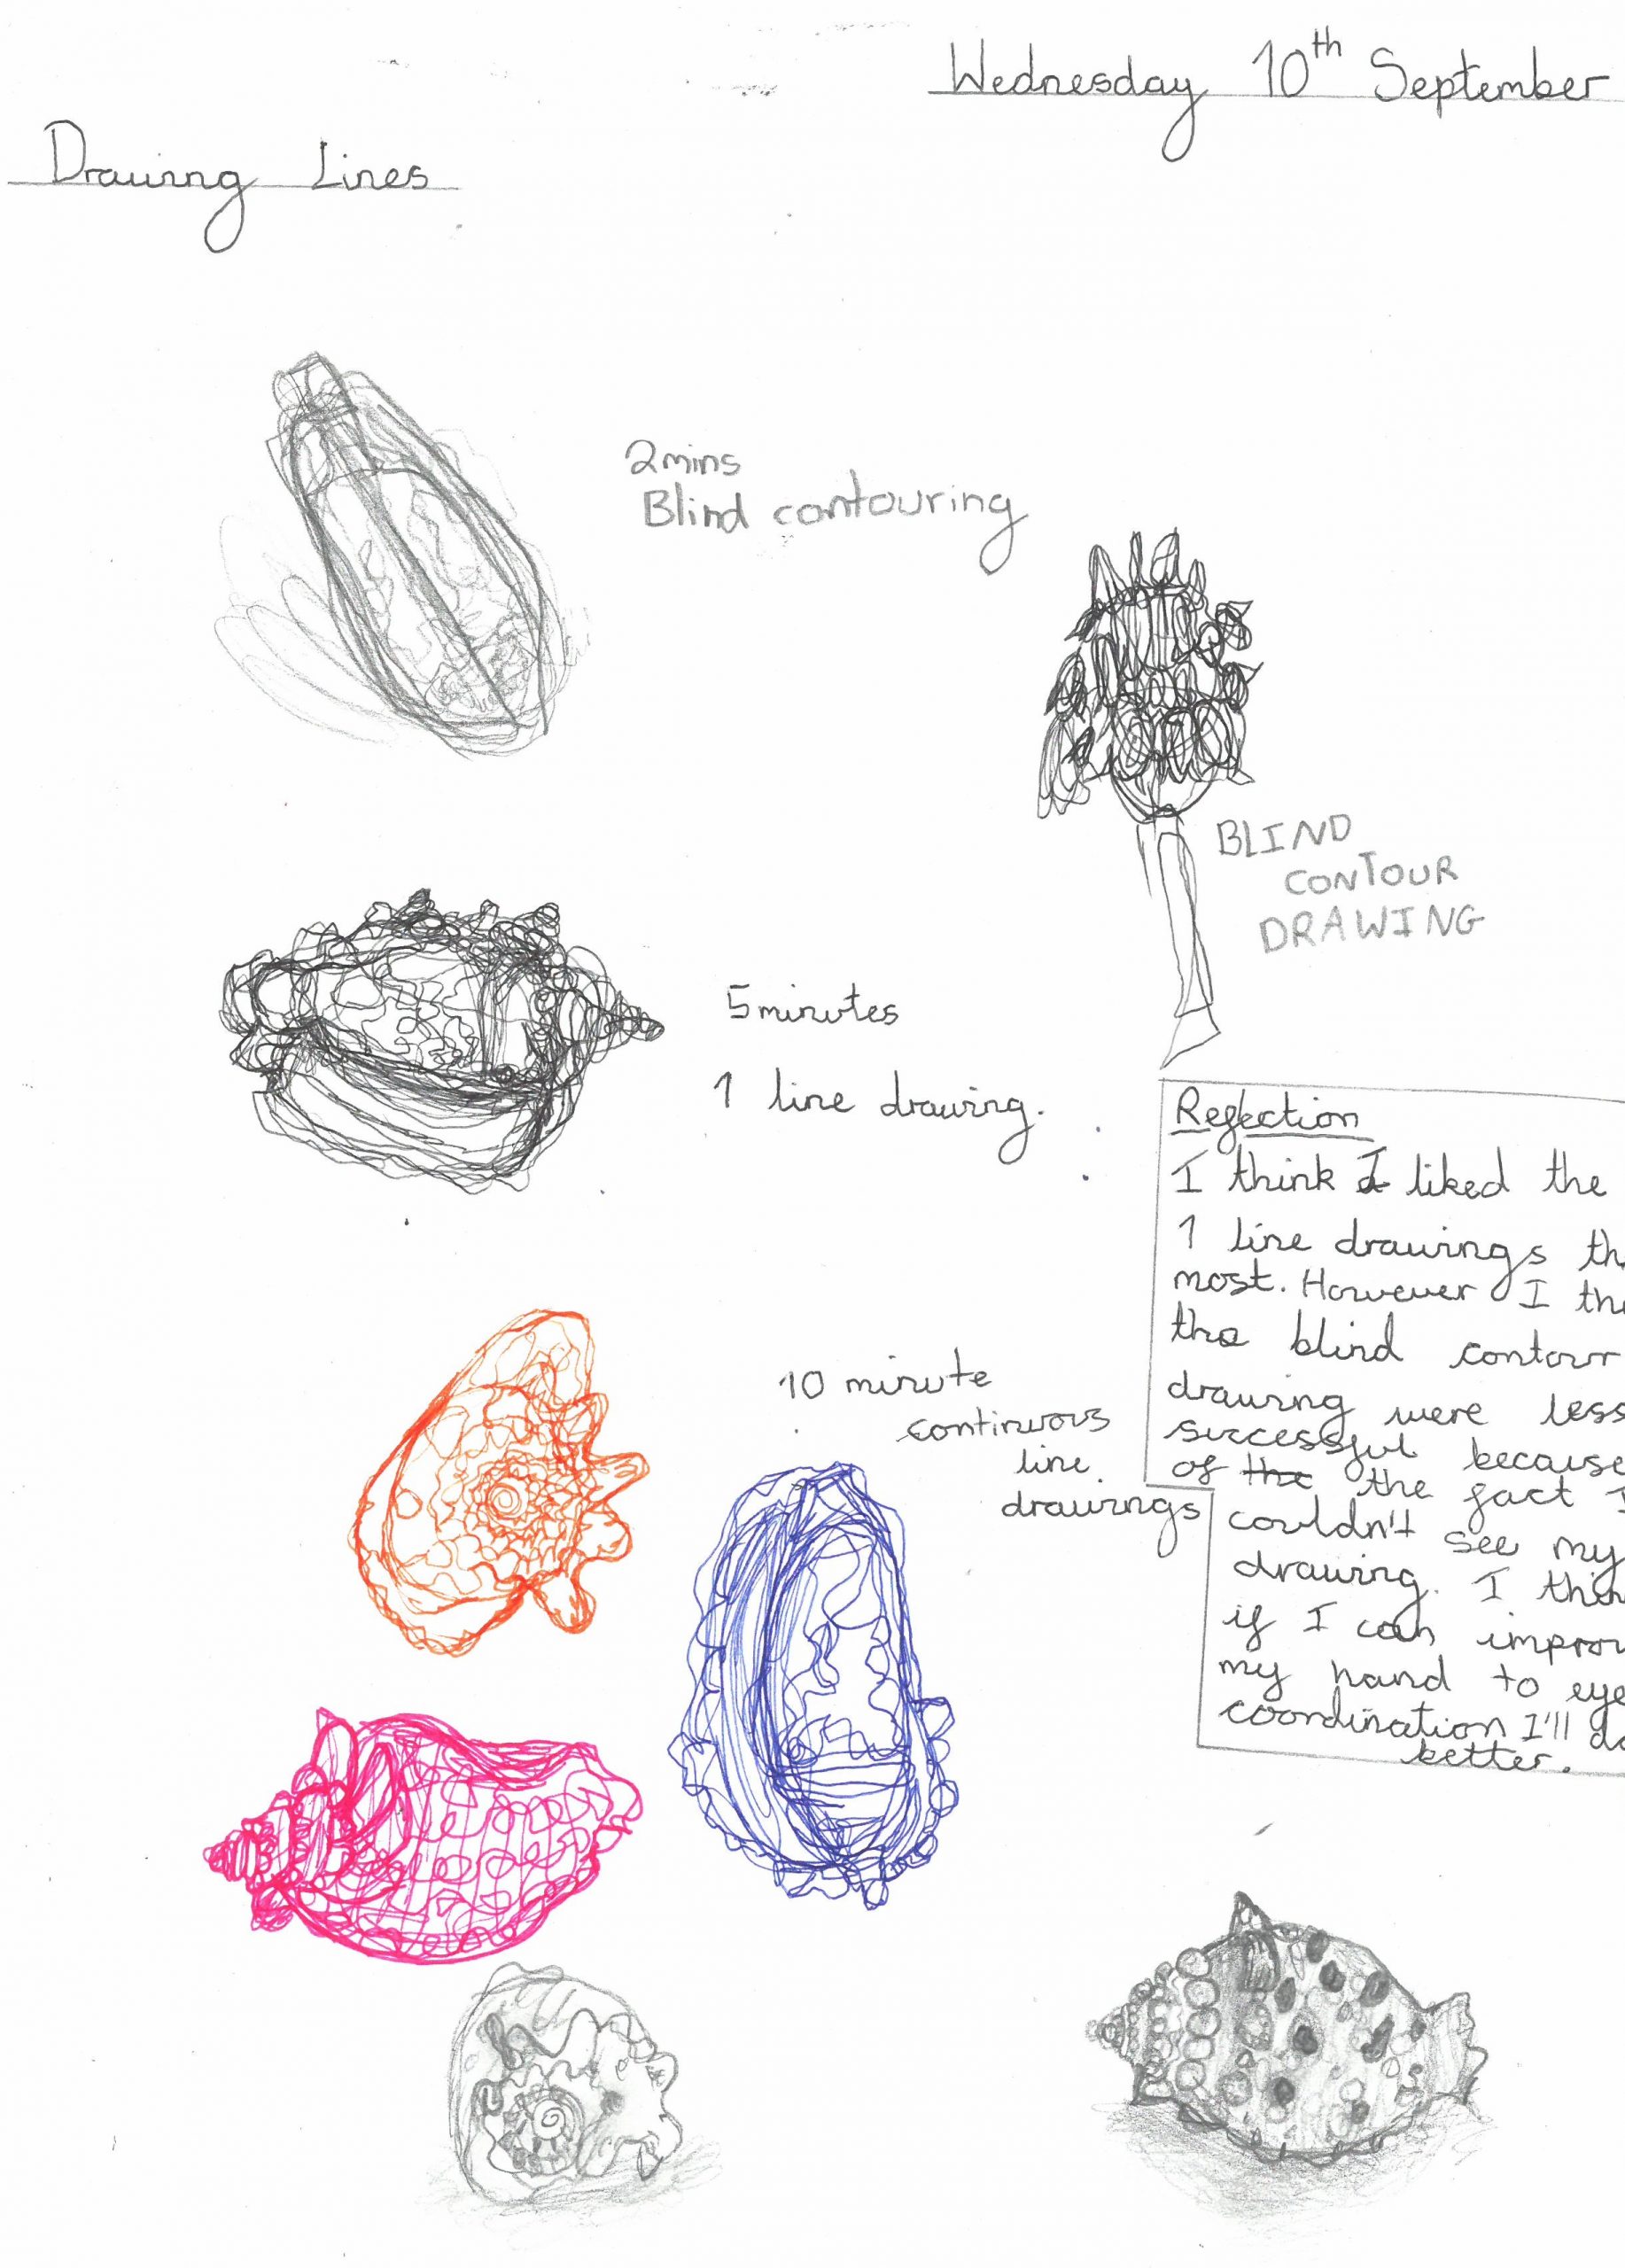 Wednesday 10th September
Drawing Lines
2mins
Blind contouring
BLIND
CONTOUR
DRAWING
5minutes
1 line drawing.
10 minute
continuous
line.
drawings
Reflection
I think I liked the
1 line drawings th
most. However I th
the blind contour
drawing were less
successful because
of the the fact I
couldn't see my
drawing. I thin
if I can improv
my hand to eye
coordination I'll do
better.